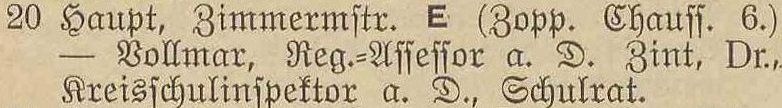 20 Haupt, Zimmermſtr. E (Zopp. Chauſſ. 6.)
— Vollmar, Reg.=Aſſeſſor a. D. Zint, Dr.,
Kreisſchulinſpektor a. D., Schulrat.